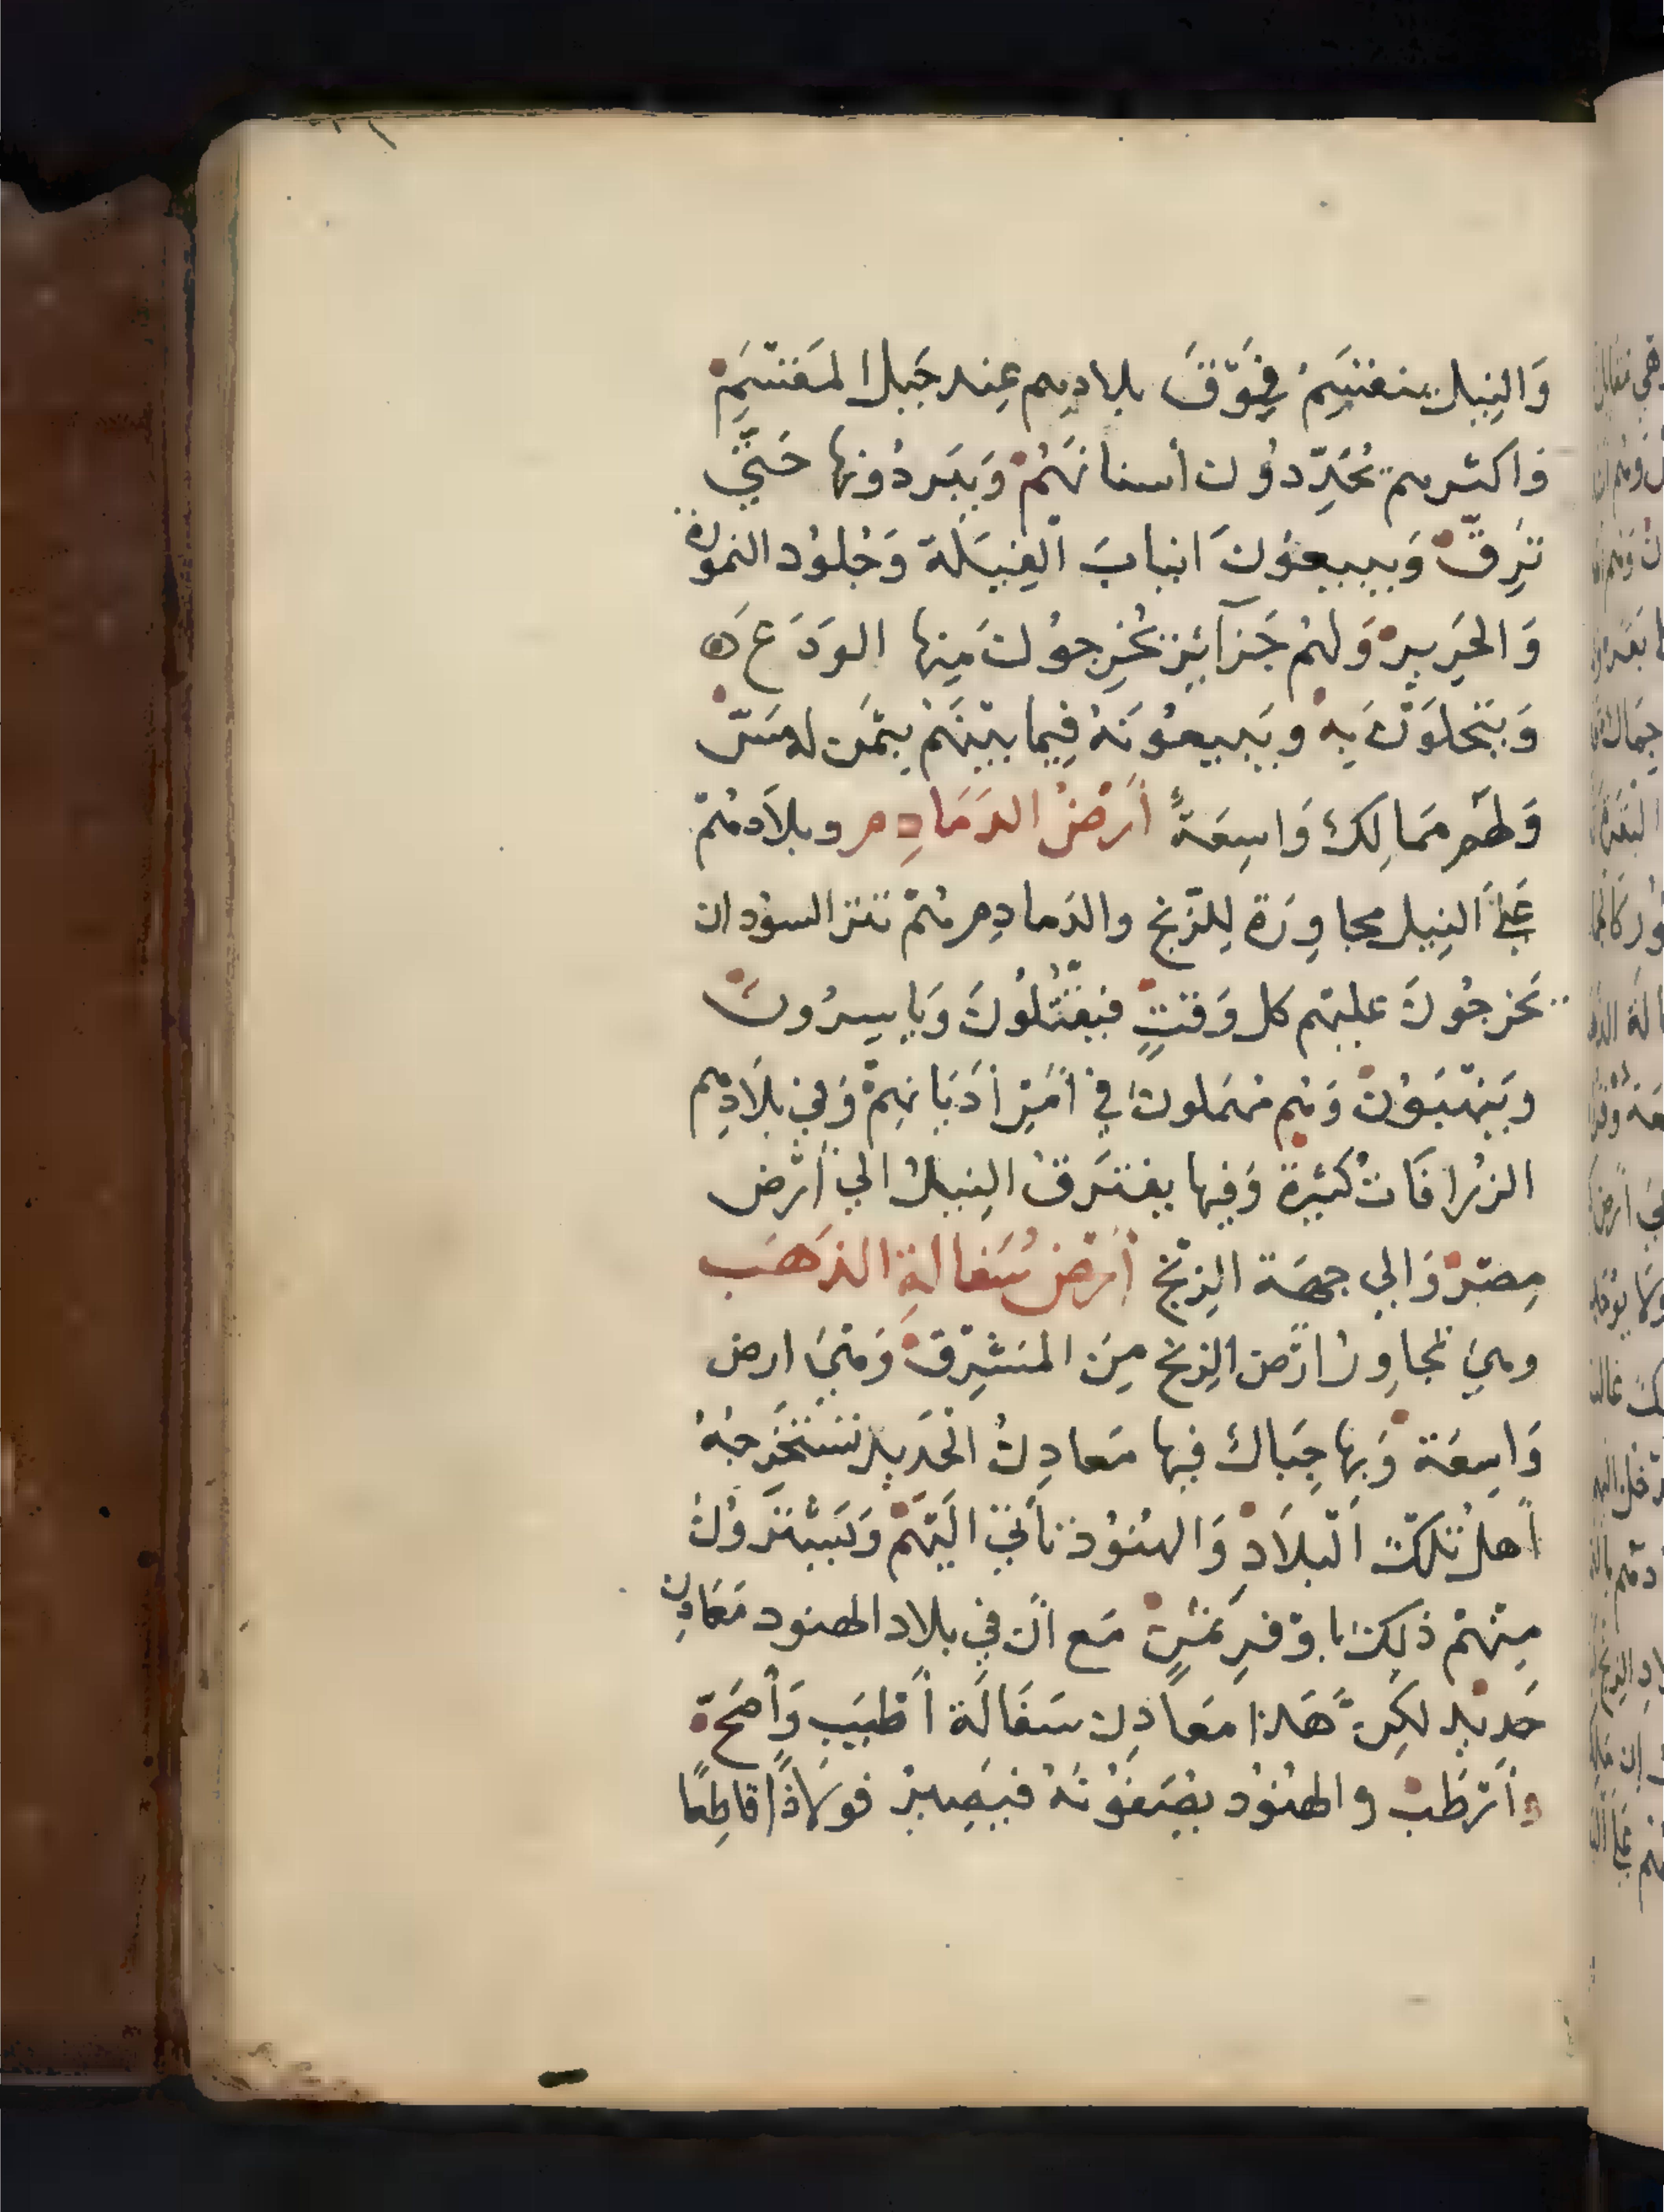 وَالنِيلُ ينقَسِمُ فِوَّقَ بلادِهِم عِند جَبَلِ المَقسَمِ
وَاكثرهم يُحَدِّدُون أسنانَهُمْ وَيَبردُونها حَتّي
تَرِقَّ وَيبيعُونَ انيابَ الفِيَلَة وَجُلوُد النمورة
وَالحَرِير وَلهُم جَزآئِر يُخْرِجوُن مَنِها الوَدَعَ ه
وَيَتَحلوَّنَ بِهِ ويَبيعُونَهُ فِيما بيْنَهُمْ بثَمَن لهُ سَرّ
وَلهَم مَمالِكُ وَاسِعَةً أَرْضُ الدَمَادِم وبلاَدهُمْ
عَلَى النِيل مجاوِرَة لِلزّنج والدَمادِم هُمْ تتر السوُدان
يَخْرجُونَ عليهم كل وَقتٍ فيَقْتُلوُنَ وَيا سِرُونَ
ويَنهَبوُنَ وَهُم مُهْمَلون في أمْرِ أدْيَانِهِمْ وَفي بلاَدِهِم
الزُرافَاتُ كَثيرة وَفِيها يفتَرقُ النِيلُ الي أرْض
مِصْرَ وَالي جِهَة الزِنْج أرْض سُفَالَةِ الذَهَب
وهيَ تُجاوِرُ ارْضَ الزِنج مِنَ المَشرِق وَهيَ ارض
وَاسِعَة وَبها جِبَالٌ فيها مَعادِنُ الحَدِيد تَسْتَخْرِجُهُ
أهلُ تلكَ البْلاَد وَالهنوُد تأتي اليَهْمْ وَيَشتَرُونَ
مِنْهُمْ ذلِكَ باوْفرِ ثمَنٍ مَع انَّ في بلاد الهنود مَعَادِن
حَديد لكِنَّ هَذا مَعَادِن سَفَالَة أطْيَب وَأصَحّ
وَأرْطَبْ والهنُوُد يُصَفوُّنَهُ فَيَصِيرُ فوَلاذًا قاطِعًا